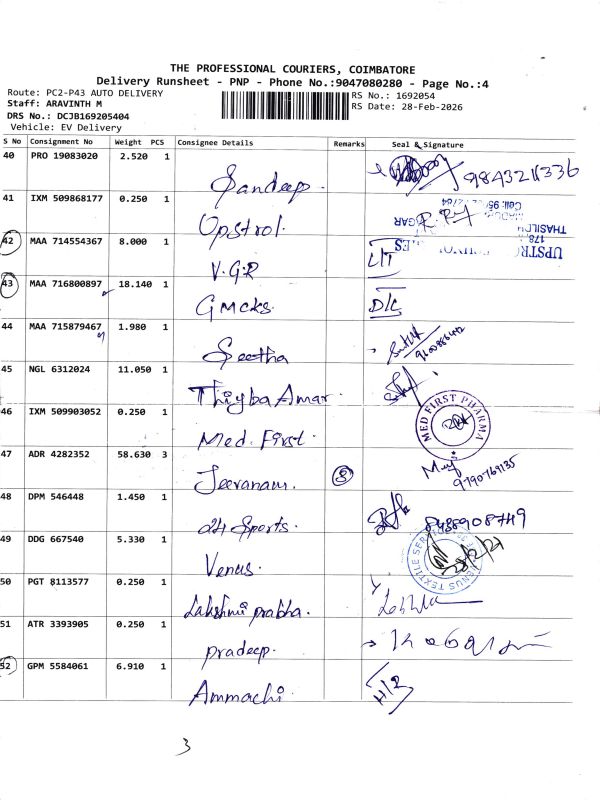 THE PROFESSIONAL COURIERS, COIMBATORE
Delivery Runsheet - PNP - Phone No.:9047080280 - Page No.:4
Route: PC2-P43 AUTO DELIVERY
RS No.: 1692054
Staff: ARAVINTH M
RS Date: 28-Feb-2026
DRS No.: DCJB169205404
Vehicle: EV Delivery
S No Consignment No Weight PCS Consignee Details Remarks Seal & Signature
40 PRO 19083020 2.520 1 Sandeep. 9843211336
41 IXM 509868177 0.250 1 Upstrol.
42 MAA 714554367 8.000 1 V.G.R LIT
43 MAA 716800897 18.140 1 Gmcks. D/L
44 MAA 715879467 1.980 1 Seetha
45 NGL 6312024 11.050 1 Thigba Amar.
46 IXM 509903052 0.250 1 Med. First. MED FIRST PHARMA
47 ADR 4282352 58.630 3 Jeevanam. 3 9790769135
48 DPM 546448 1.450 1 24 Sports. 8489908749
49 DDG 667540 5.330 1 Venus. VENUS TEXTILE
50 PGT 8113577 0.250 1 Lakshmi prabha.
51 ATR 3393905 0.250 1 pradeep.
52 GPM 5584061 6.910 1 Ammachi H/R
3